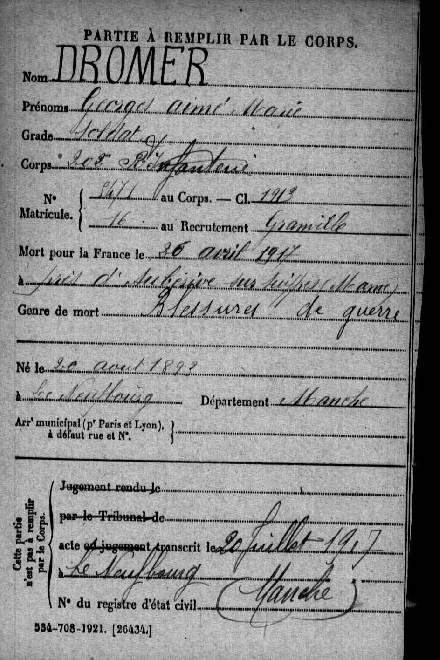 PARTIE À REMPLIR PAR LE CORPS.
Nom DROMER
Prénoms Georges Aimé Marie
Grade Soldat
Corps 202e R. Infanterie
N° Matricule. { 5471 au Corps. — Cl. 1912
16 au Recrutement Granville
Mort pour la France le 26 avril 1917
à près d'Aubérive sur Suippes (Marne)
Genre de mort Blessures de guerre
Né le 20 août 1892
à Le Neufbourg Département Manche
Arrt municipal (pr Paris et Lyon), à défaut rue et N°. }
Cette partie n'est pas à remplir par le Corps.
Jugement rendu le
par le Tribunal de
acte ou jugement transcrit le 20 Juillet 1917
à Le Neufbourg
(Manche)
N° du registre d'état civil
534-708-1921. [26434.]